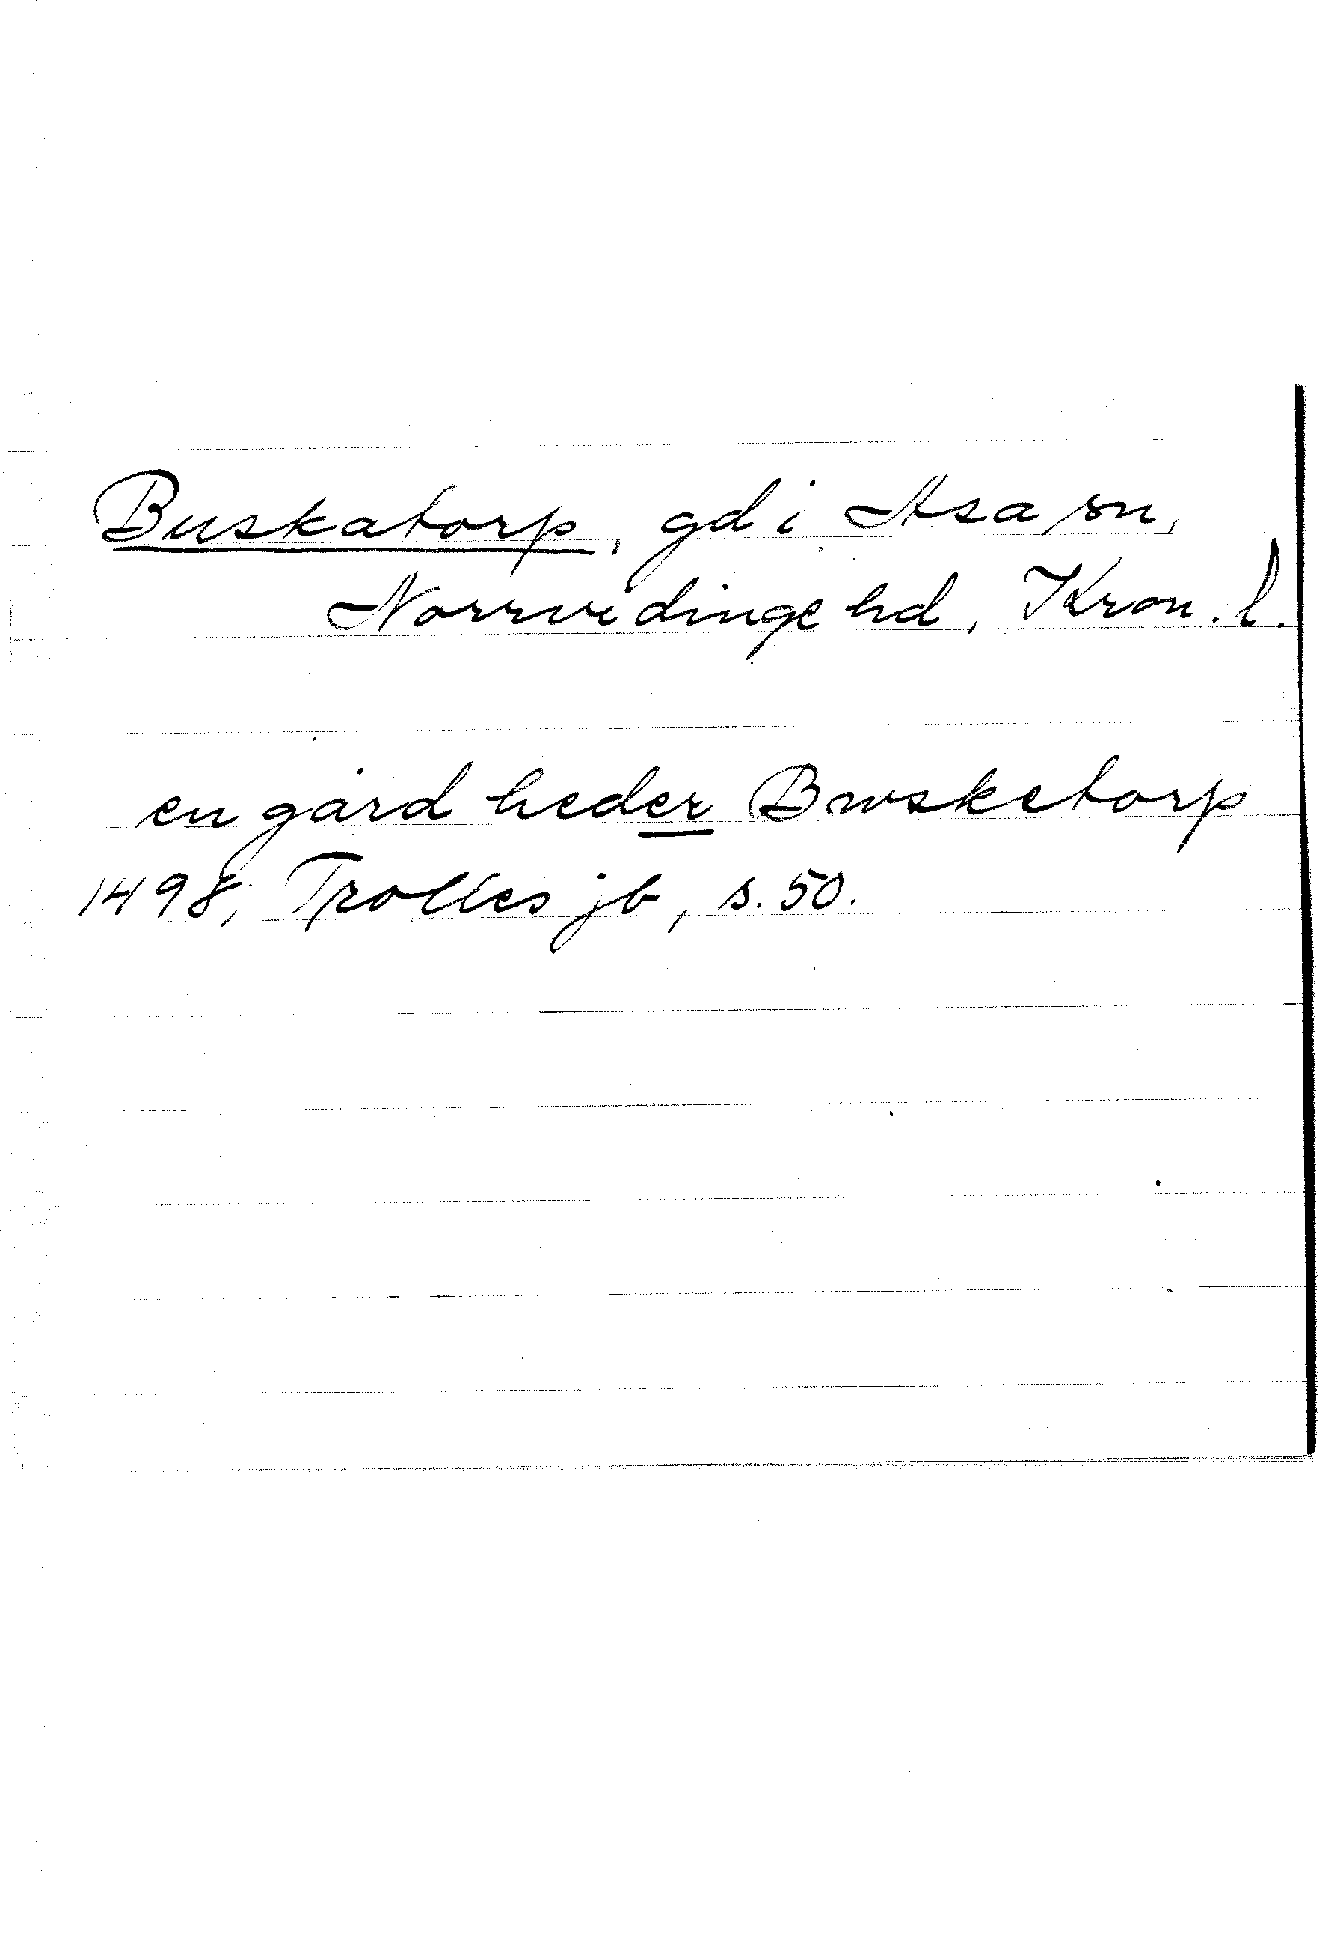 Buskatorp, gd i Asa sn,
Norrvidinge hd, Kron. l.
en gård heder Bwsketorp
1498, Trolles jb, s. 50.